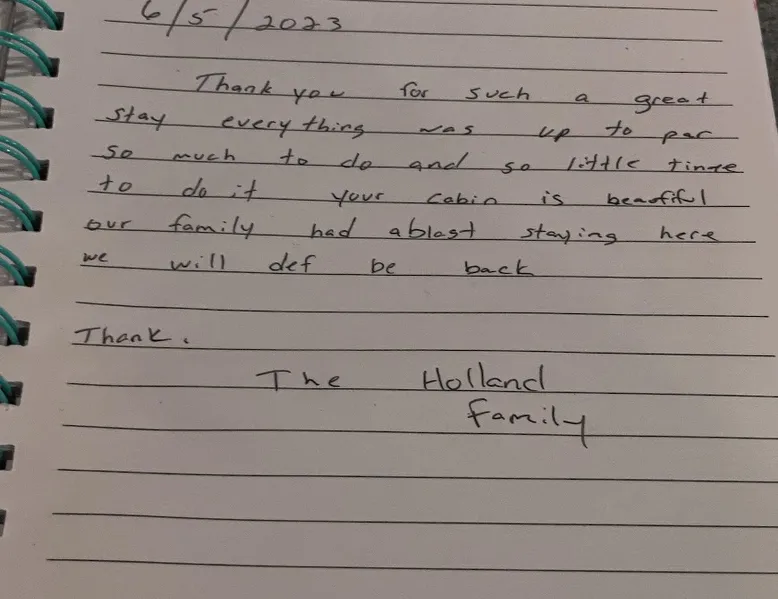 6/5/2023
Thank you for such a great
stay everything was up to par
so much to do and so little time
to do it your cabin is beautiful
our family had ablast staying here
we will def be back
Thank.
The Holland
Family